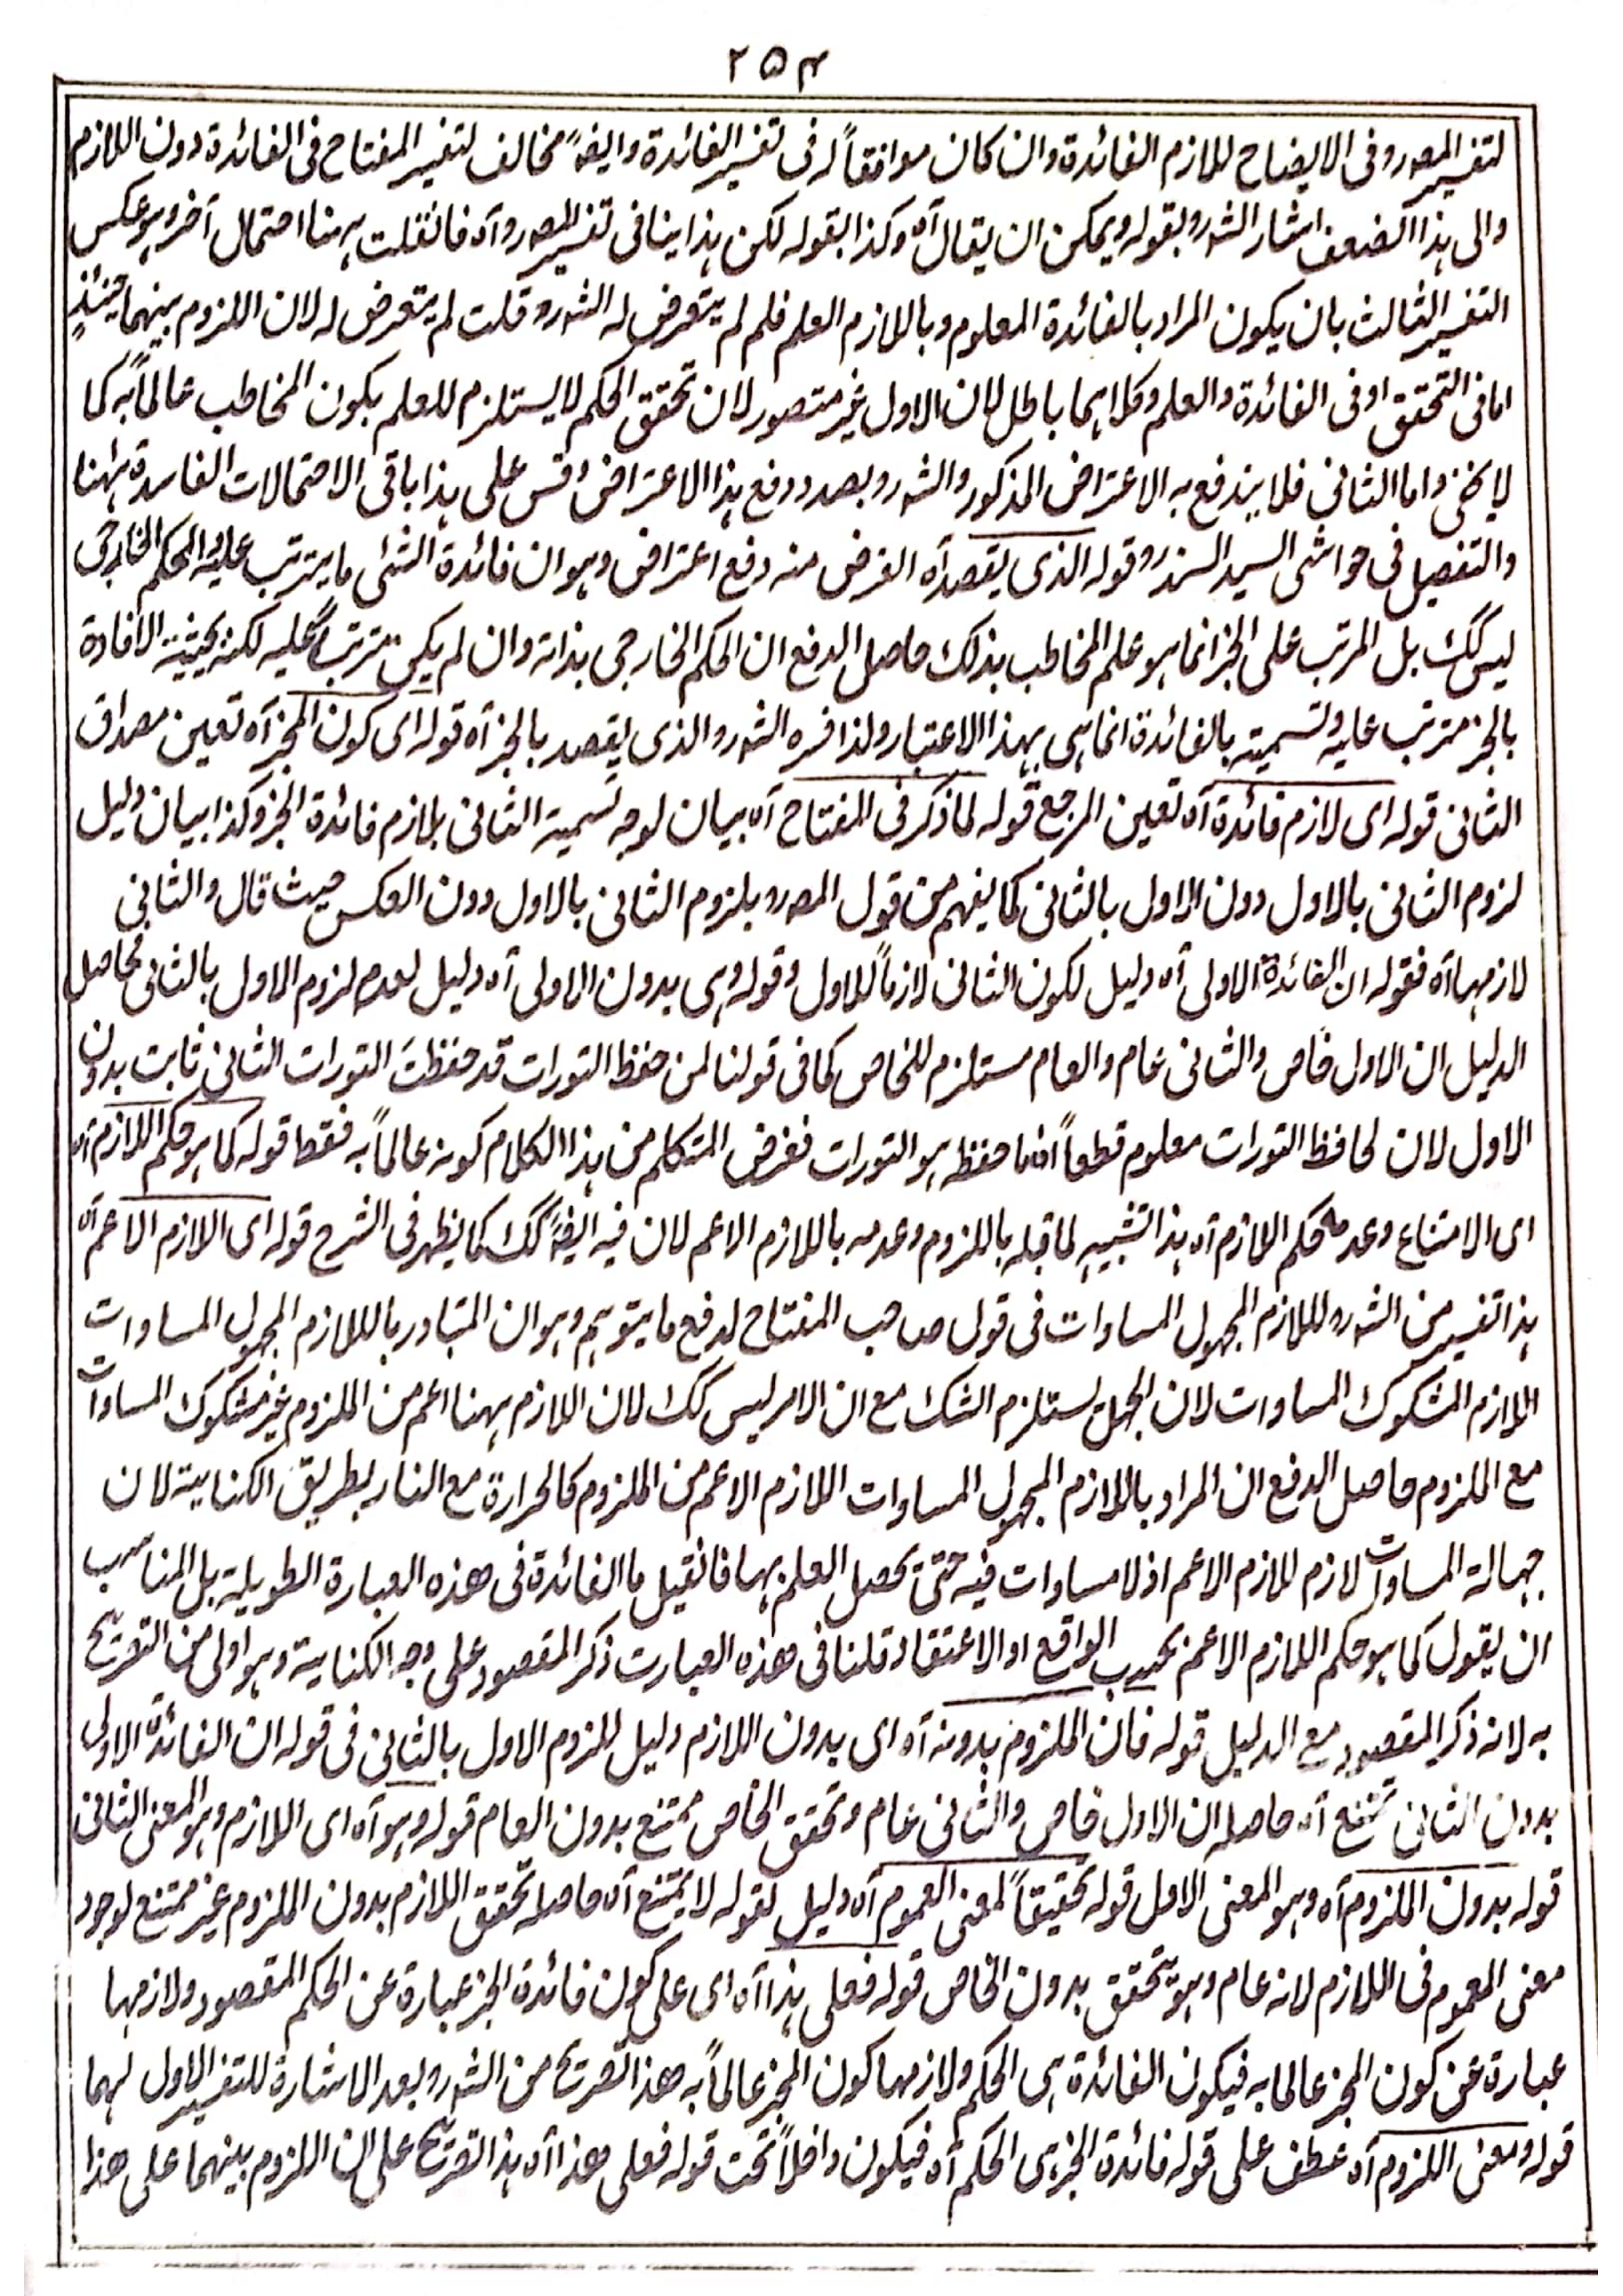 ۲۵۴
لتفسير المصر وفى الايضاح للازم الفائدة وان كان موافقاً له فى تفسير الفائدة وايضاً مخالف لتفسير المفتاح فى الفائدة دون اللازم
والى هذا الضعف اشار الشرو بقوله ويمكن ان يقال آه وكذا بقوله لكن هذا ينافى تفسير المصر و آه فان قلت ههنا احتمال آخر وهو عكس
التفسير الثالث بان يكون المراد بالفائدة المعلوم وباللازم العلم فلم لم يتعرض له الشرو قلت لم يتعرض له لان اللزوم بينهما حينئذٍ
اما فى التحقق او فى الفائدة والعلم وكلاهما باطل لان الاول غير متصور لان تحقق الحكم لا يستلزم للعلم بكون المخاطب عالماً به كما
لا يخفى واما الثانى فلا يندفع به الاعتراض المذكور والشرو بصدد دفع هذا الاعتراض وقس على هذا باقى الاحتمالات الفاسدة ههنا
والتفصيل فى حواشى السيد السندرو قوله الذى يقصد آه الغرض منه دفع اعتراض وهو ان فائدة الشئ ما يترتب عليه والحكم الخارجى
ليس كك بل المرتب على الخبر انما هو علم المخاطب بذلك حاصل الدفع ان الحكم الخارجى بذاته وان لم يكن مترتباً عليه لكنه بحيثية الافادة
بالخبر مترتب عليه وتسميته بالفائدة انما هى بهذا الاعتبار ولذا فسره الشرو والذى يقصد بالخبر آه قوله اى كون المخبر آه تعين مصداق
الثانى قوله اى لازم فائدة آه تعين المرجع قوله لما ذكر فى المفتاح آه بيان لوجه تسمية الثانى بلازم فائدة الخبر وكذا بيان دليل
لزوم الثانى بالاول دون الاول بالثانى كما يفهم من قول المصرو بلزوم الثانى بالاول دون العكس حيث قال والثانى
لازمها آه فقوله ان الفائدة الاولى آه دليل لكون الثانى لازماً للاول وقوله وهى بدون الاولى آه دليل لعدم لزوم الاول بالثانى فحاصل
الدليل ان الاول خاص والثانى عام والعام مستلزم للخاص كما فى قولنا لمن حفظ التورات قد حفظتَ التورات الثانى ثابت بدون
الاول لان لحافظ التورات معلوم قطعاً ان ما حفظه هو التورات فغرض المتكلم من هذا الكلام كونه عالماً به فقط قوله كما هو حكم اللازم آه
اى الامتناع وعدمه حكم اللازم آه هذا تشبيه لما قبله باللزوم وعدمه باللازم الاعم لان فيه ايضاً كك كما يظهر فى الشرح قوله اى اللازم الاعم آه
هذا تفسير من الشرو للازم المجهول المساوات فى قول صاحب المفتاح لدفع ما يتوهم وهو ان المتبادر باللازم المجهول المساوات
اللازم المشكوك المساوات لان الجهل يستلزم الشك مع ان الامر ليس كك لان اللازم ههنا اعم من الملزوم غير مشكوك المساوات
مع الملزوم حاصل الدفع ان المراد باللازم المجهول المساوات اللازم الاعم من الملزوم كالحرارة مع النار بطريق الكناية لان
جهالة المساوات لازم للازم الاعم اذ لا مساوات فيه حتى يحصل العلم بها فان قيل ما الفائدة فى هذه العبارة الطويلة بل المناسب
ان يقول كما هو حكم اللازم الاعم بحسب الواقع او الاعتقاد قلنا فى هذه العبارت ذكر المقصود على وجه الكناية وهو اولى من التصريح
به لانه ذكر المقصود مع الدليل قوله فان الملزوم بدونه آه اى بدون اللازم دليل للزوم الاول بالثانى فى قوله ان الفائدة الاولى
بدون الثانى تمتنع آه حاصله ان الاول خاص والثانى عام وتحقق الخاص ممتنع بدون العام قوله وهو آه اى اللازم وهو المعنى الثانى
قوله بدون الملزوم آه وهو المعنى الاول قوله تحقيقاً لمعنى العموم آه دليل لقوله لا يمتنع آه حاصله تحقق اللازم بدون الملزوم غير ممتنع لوجود
معنى العموم فى اللازم لانه عام وهو يتحقق بدون الخاص قوله فعلى هذا آه اى على كون فائدة الخبر عبارة عن الحكم المقصود ولازمها
عبارة عن كون المخبر عالما به فيكون الفائدة هى الحكم ولازمها كون المخبر عالماً به هذا تصريح من الشرو بعد الاشارة للتفسير الاول لهما
قوله ومعنى اللزوم آه عطف على قوله فائدة الخبر هى الحكم آه فيكون داخلاً تحت قوله فعلى هذا آه هذا تصريح على ان اللزوم بينهما على هذا